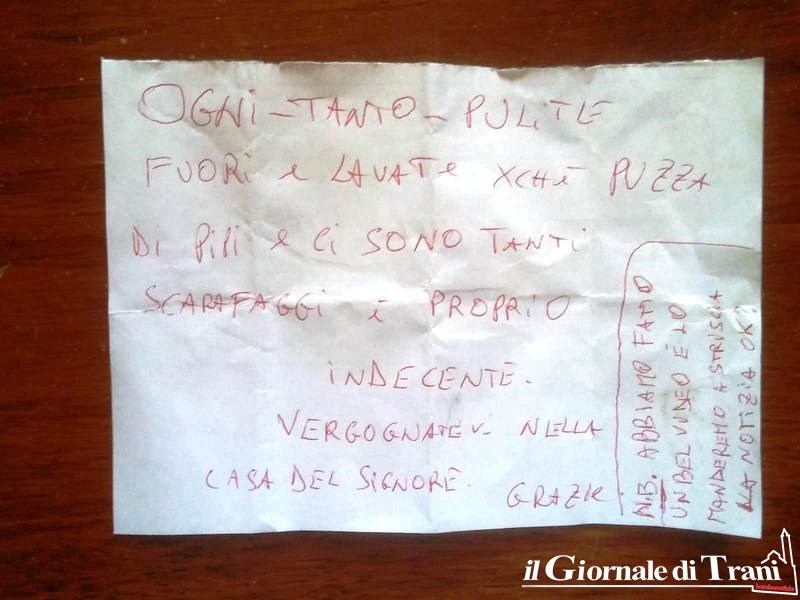 OGNI-TANTO-PULITE
FUORI E LAVATE XCHÈ PUZZA
DI PIPI E CI SONO TANTI
SCARAFAGGI È PROPRIO
INDECENTE.
VERGOGNATEVI NELLA
CASA DEL SIGNORE.
GRAZIE
N.B. ABBIAMO FATTO
UN BEL VIDEO E LO
MANDEREMO A STRISCIA
LA NOTIZIA OK?
il Giornale di Trani